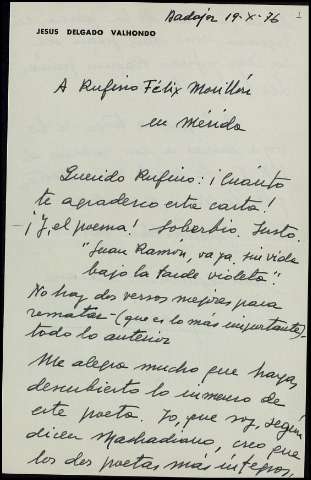 Badajoz 19-X-76
1
JESUS DELGADO VALHONDO
A Rufino Félix Morillón
en Mérida
Querido Rufino: ¡Cuánto
te agradezco esta carta!
¡Y, el poema! Soberbio. Justo.
"Juan Ramón, vaya su vida
bajo la tarde violeta".
No hay dos versos mejores para
rematar - (que es lo más importante) -
todo lo anterior
Me alegra mucho que hayas
descubierto lo inmenso de
este poeta. Yo, que soy, según
dicen Machadiano, creo que
los dos poetas más íntegros,